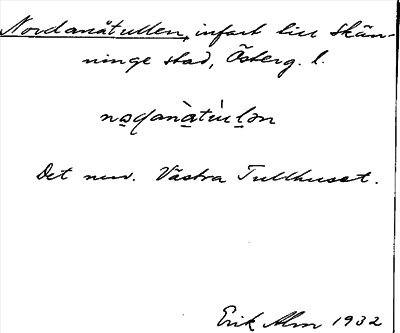 Nordanåtullen, infart till Skän-
ninge stad, Österg. l.
nọḍanàtúlḷən
Det nuv. Västra Tullhuset.
Erik Alm 1932